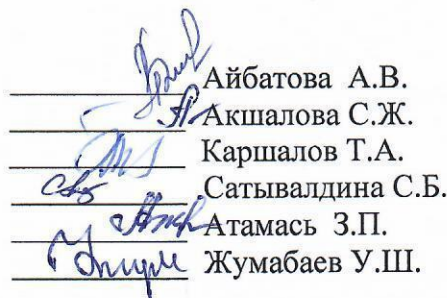 Айбатова А.В.
Акшалова С.Ж.
Каршалов Т.А.
Сатывалдина С.Б.
Атамась З.П.
Жумабаев У.Ш.